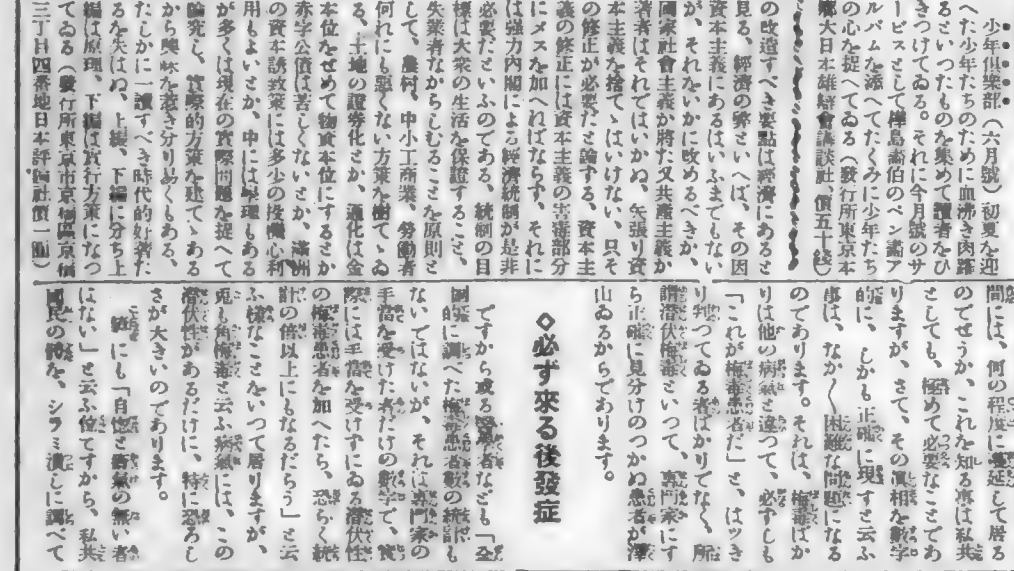 少年俱樂部（六月號）初夏を迎
へた少年たちのために血沸き肉躍
るといつたものを集めて讀者をひ
きつけてゐる。それに今月號のサ
ービスとして樺島畵伯のペン畵ア
ルバムを添へてたくみに少年たち
の心を捉へてゐる（發行所東京本
鄕大日本雄辯會講談社、價五十錢）
の改造すべき要點は經濟にあると
見る、經濟の弊といへば、その因
資本主義にあるはいふまでもない
が、それをいかに改めるべきか、
國家社會主義か將た又共產主義か
著者はそれではいかぬ、矢張り資
本主義を捨てゝはいけない、只そ
の修正が必要だと論ずる、資本主
義の修正には資本主義の害毒部分
にメスを加へればならず、それに
は强力内閣による經濟統制が是非
必要だといふのである、統制の目
標は大衆の生活を保證すること、
失業者なからしむることを原則と
して、農村、中小工商業、勞働者
何れにも惡くない方策を樹てゝゐ
る、土地の證劵化とか、通化は金
本位をせめて物資本位にするとか
赤字公債は著しくないとか、滿洲
の資本誘致策には多少の投機心利
用もよいとか、中には無理もある
が多くは現在の實際問題を捉へて
論究し、實際的方策を建てゝある
から興味を惹き分り易くもある、
たしかに一讀すべき時代的好著た
るを失はぬ、上編、下編に分ち上
編は原理、下編は實行方策になつ
てゐる（發行所東京市京橋區京橋
三丁目四番地日本評論社價一圓）
間には、何の程度に蔓延して居る
のでせうか、これを知る事は私共
としても、極めて必要なことであ
りますが、さて、その眞相を數字
的に、しかも正確に現すと云ふ
事は、なか〳〵困難な問題になる
のであります。それは、梅毒ばか
りは他の病氣と違つて、必ずしも
「これが梅毒患者だ」と、はツき
り判つてゐる者ばかりでなく、所
謂潜伏梅毒といつて、專門家にす
ら正確に見分けのつかぬ患者が澤
山ゐるからであります。
◇必ず來る後發症
ですから或る學者なども「全
國的に調べた梅毒患者數の統計も
ないではないが、それは專門家の
手當を受けた者だけの數字で、實
際には手當を受けずにゐる潜伏性
の梅毒患者を加へたら、恐らく統
計の倍以上にもなるだらう」と云
ふ樣なことをいつて居りますが、
兎も角梅毒と云ふ病氣には、この
潜伏性があるだけに、特に恐ろし
さが大きいのであります。
にも「自惚と瘡氣の無い者
はない」と云ふ位ですから、私共
國民の を、シラミ潰しに調べて